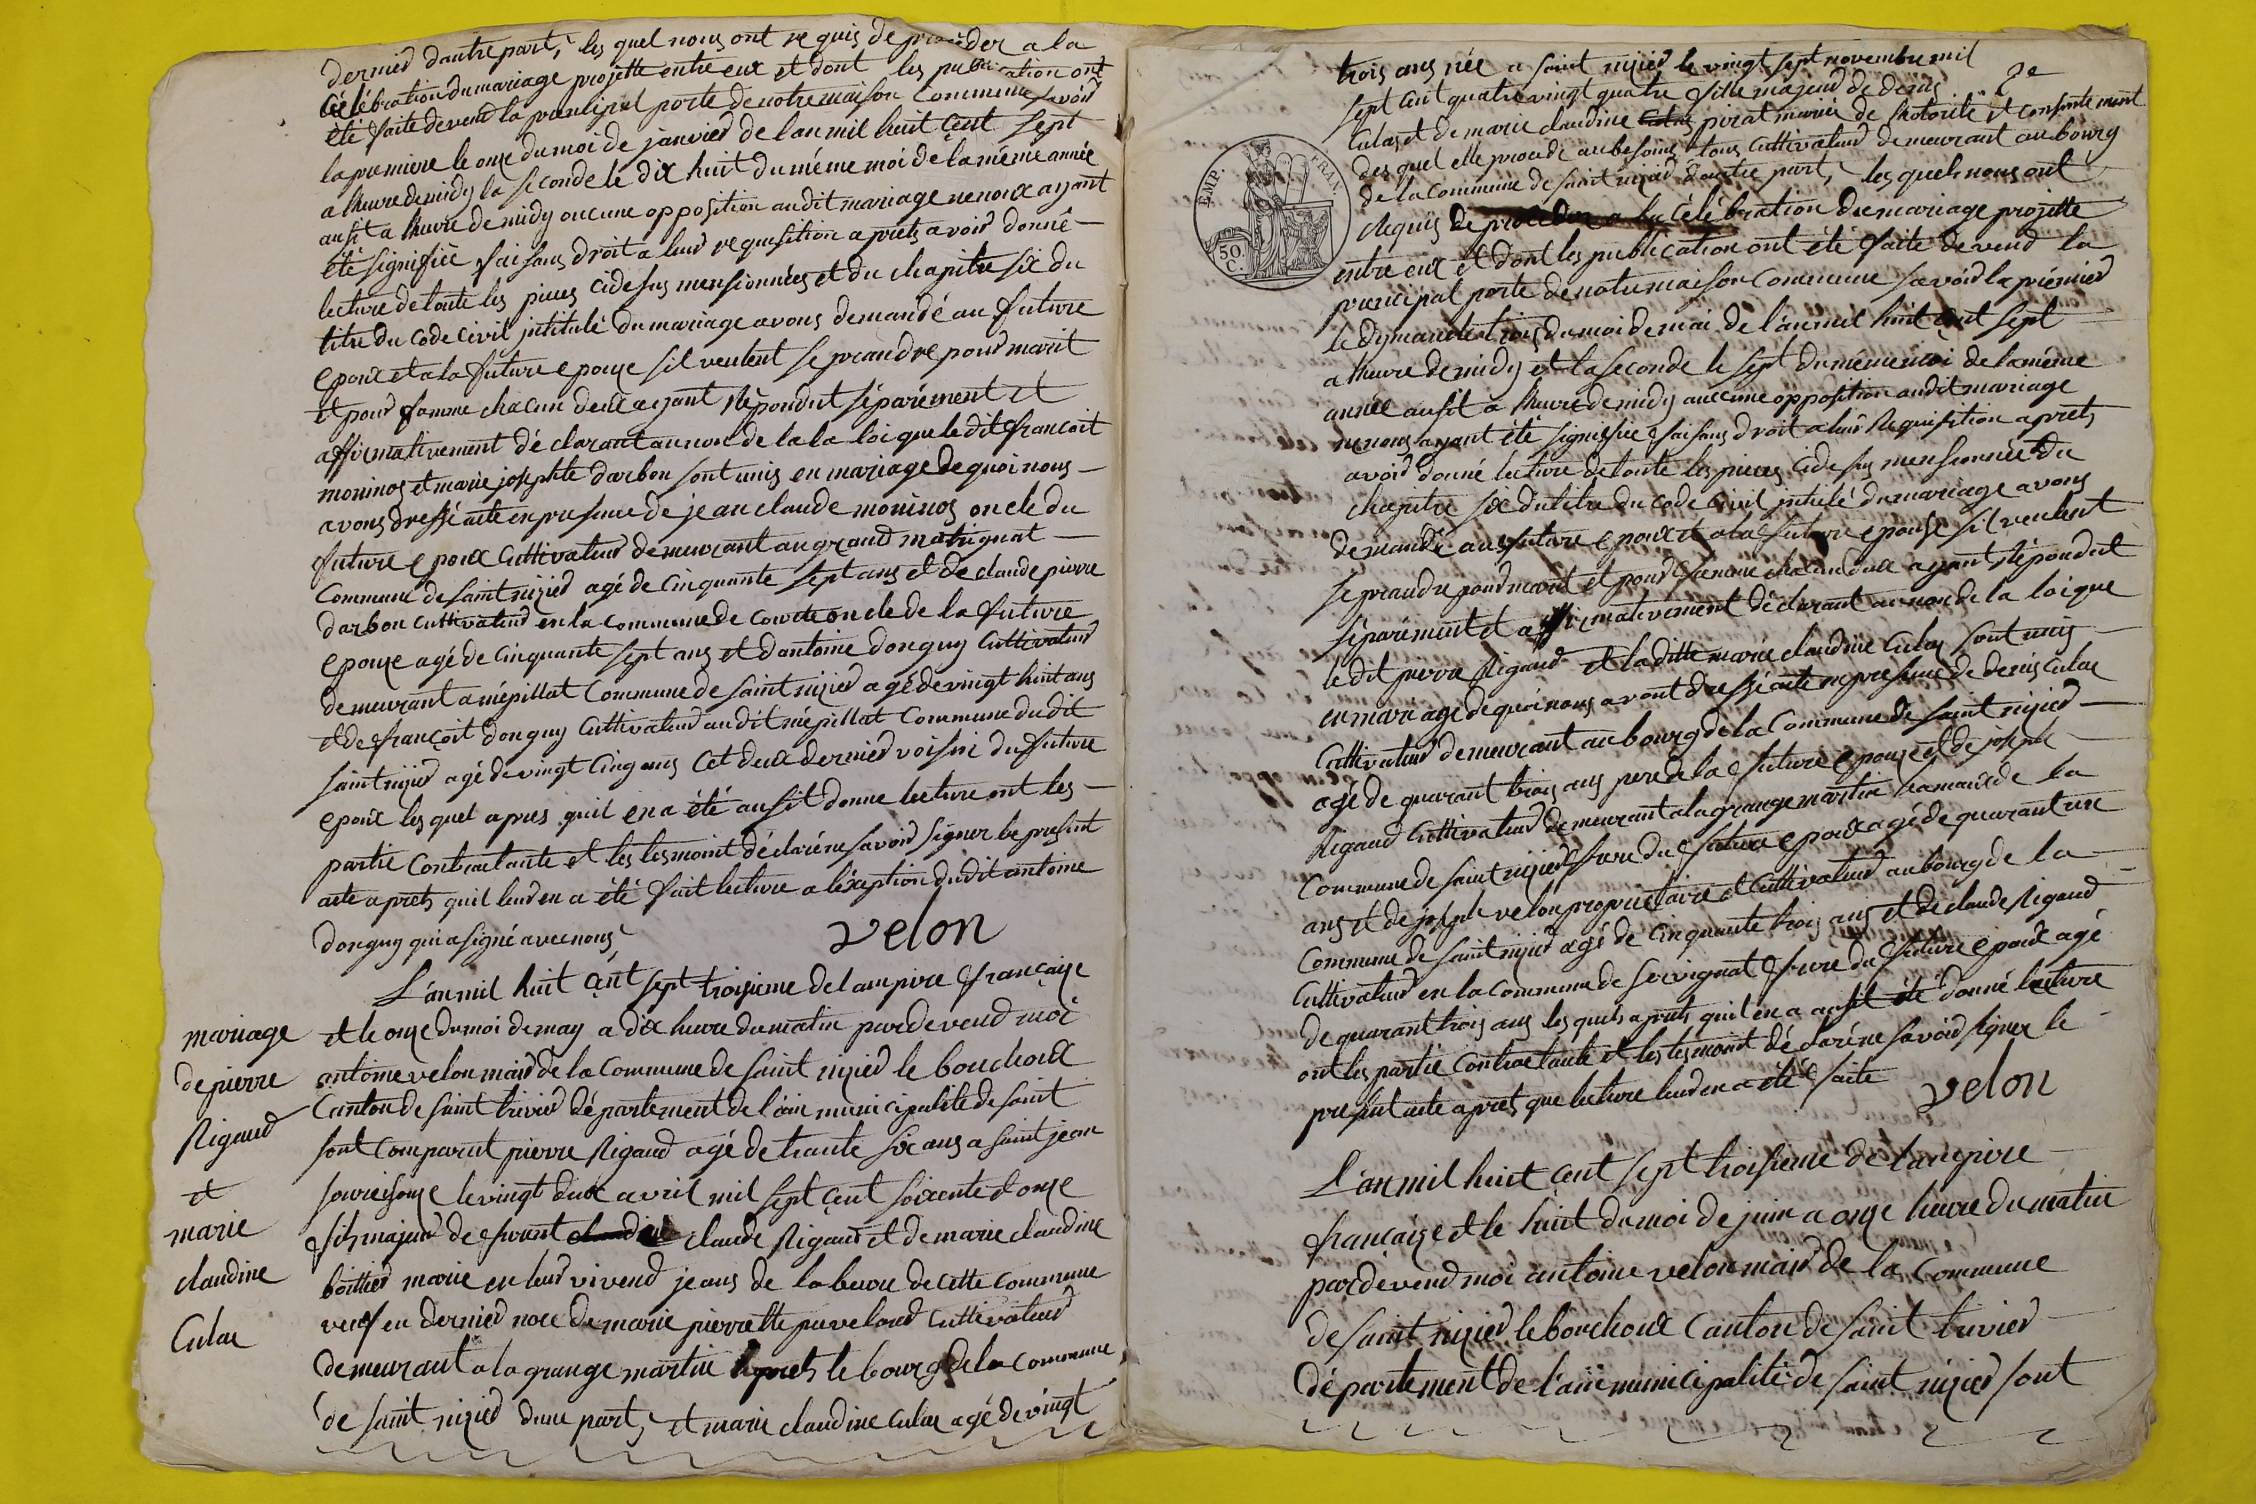 dernied dautre part, les quel nous ont requis de procéder a la
Célébration du mariage projetté entre eux et dont les publication ont
été faite devend la principal porte de notre maison Commune savoir
la premiere le onze du moi de janvied de lan mil huit cent sept
a lheure de midy la seconde le dix huit du méme moi de la méme année
ausit a lheure de midy oucune opposition audit mariage ne noux ayant
été signifiée faisans droit a leur requisition aprets avoir donné
lecture de toute les pieces cidesus mensionnées et du chapitre six du
titre du Code Civil jntitulé du mariage avons demandé au future
epoux et a la future epouze sil veulent se prandre pour marit
et pour famme chacun deux ayant répondut séparément et
affirmativement déclarant au non de la la loi que le dit françoit
moninos et marie josephte darbon sont unis en mariage de quoi nous
avons dressé acte en presence de jean claude moninos oncle du
future epoux Cultivateur demeurant au grand matignat
Commune de saint nizied agé de Cinquante sept ans et de claude pierre
darbon Cultivateur en la commune de courte oncle de la future
epouze agé de Cinquante sept ans et dantoine donguy Cultivateur
demeurant a mépillat Commune de saint nizied agé de vingt huit ans
et de françoit donguy Cultivateur audit mépillat Commune dudit
saint nizied agé de vingt cinq ans Cet deux dernied voisin du future
epoux les quel apres quil en a été ausit donne lecture ont les
partie Contractante et les tesmoint déclaré ne savoir signer le present
acte aprets quil leur en a été fait lecture a léxeption dudit antoine
donguy qui a signé avec nous
velon
mariage
de pierre
Rigaud
et
marie
claudine
Culas
L'an mil huit cent sept troizieme de lampire françaize
et le onze du moi de may a dix heure du matin pardevend moi
antoine velon maire de la Commune de saint nizied le bouchoux
Canton de saint trivied département de l'ain municipalité de saint
sont comparut pierre Rigaud agé de trante six ans a saint jean
le vingt deux avril mil sept cent soixante et onze
fils majeur de claude Rigaud et de marie claudine
marie en leur vivend jeans de la beure de cette commune
veuf en dernied noce de marie pierrette Cultivateur
demeurant a la grange martin aprets le bourg de la commune
de saint nizied dune part, et marie claudine Culas agé de vingt
2e
trois ans née a saint nizied le vingt sept novembre mil
sept cent quatre vingt quatre fille majeur de denis
Culas et de marie claudine pirat mariée de lhotorité et consentement
des quel elle procede au besoins tous Cultivateur demeurant au bourg
de la commune de saint nizied dautre part, les quels nous ont
EMP. FRAN.
50 C.
requis de proceder a la célébration du mariage projetté
entre eux et dont les publication ont été faite devend la
principal porte de notre maison Commune savoir la premied
le dymanche trois du moi de mai de l'an mil huit cent sept
a lheure de midy et la seconde le sept du méme moi de la méme
année ausit a lheure de midy aucune opposition audit mariage
ne nous ayant été signifiée faisans droit a leur Requisition aprets
avoir donné lecture de toute les pieces cidesus mensionnée du
chapitre six du titre du Code Civil jntitulé du mariage avons
demandé au future epoux et a la future epouse sil veulent
se prandre pour marit et pour famme chacun deux ayant répondut
séparément et affirmativement déclarant au non de la loi que
le dit pierre Rigaud et la ditte marie claudine Culas sont unis
en mariage de quoi nous avont dressé acte en presence de denis Culas
Cultivateur demeurant au bourg de la Commune de saint nizied
agé de quarant trois ans pere de la future epouze et de joseph
Rigaud Cultivateur demeurant a la grange martin hamaux de la
Commune de saint nizied frere du future epoux agé de quarant un
ans et de joseph velon propriétaire et Cultivateur au bourg de la
Commune de saint nizied agé de Cinquante trois ans et de claude Rigaud
Cultivateur en la commune de servignat frere du future epoux agé
de quarant trois ans les quels aprets quil en a ausit été donné lecture
ont les partie Contractante et les tesmoint déclaré ne savoir signer le
present acte aprets que lecture leur en a été faite
velon
L'an mil huit cent sept troisieme de lampire
françaize et le huit du moi de juin a onze heure du matin
pardevend moi antoine velon maire de la Commune
de saint nizied le bouchoux Canton de saint trivied
département de l'ain municipalité de saint nizied sont